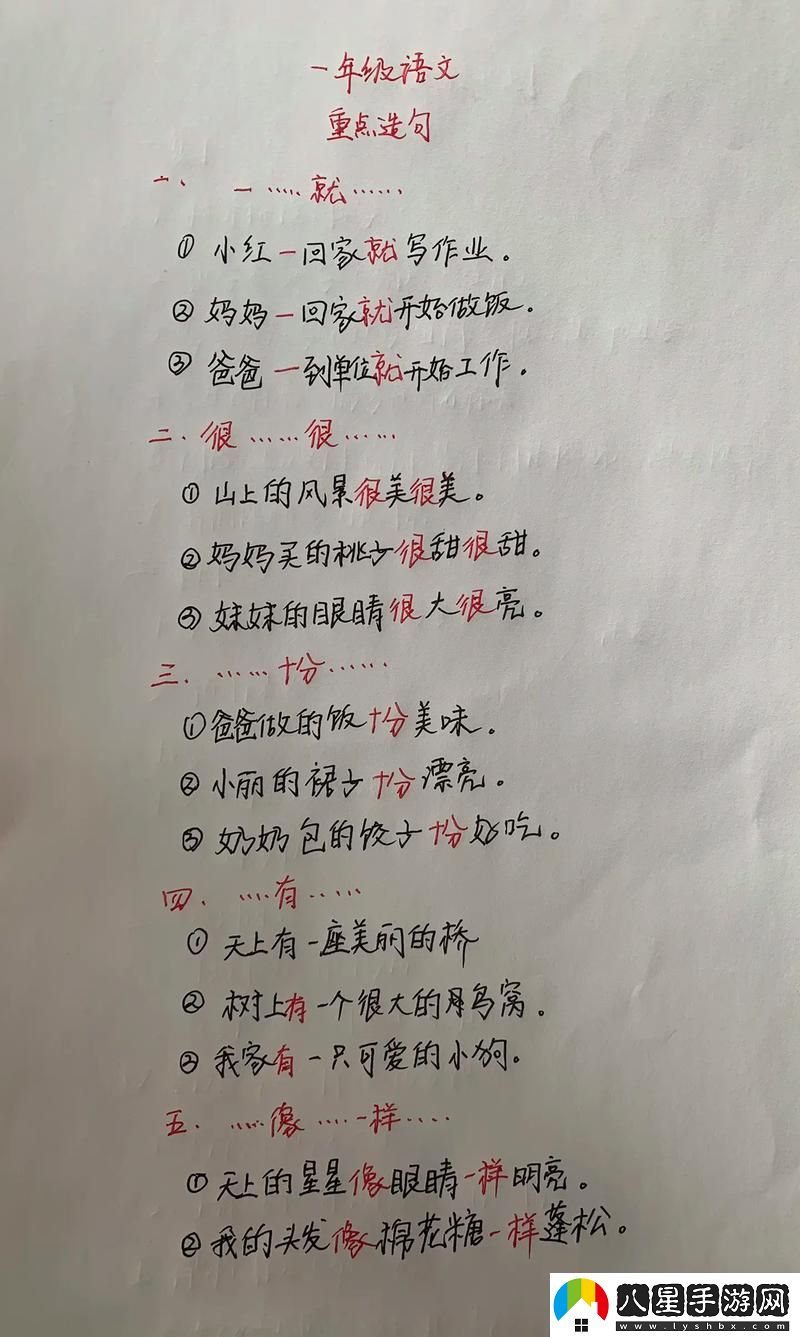 一年级语文
重点造句
一、 一……就……
① 小红一回家就写作业。
② 妈妈一回家就开始做饭。
③ 爸爸一到单位就开始工作。
二.很……很……
① 山上的风景很美很美。
② 妈妈买的桃子很甜很甜。
③ 妹妹的眼睛很大很亮。
三.……十分……
① 爸爸做的饭十分美味。
② 小丽的裙子十分漂亮。
③ 奶奶包的饺子十分好吃。
四.……有……
① 天上有一座美丽的桥
② 树上有一个很大的鸟窝。
③ 我家有一只可爱的小狗.
五.……像……一样……
① 天上的星星像眼睛一样明亮。
② 我的头发像棉花糖一样蓬松。
八星手游网
www.lyshbx.com